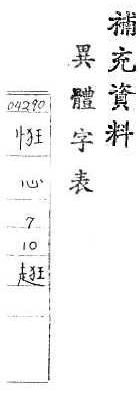 補充資料
異體字表
04290
恇
心
7
10